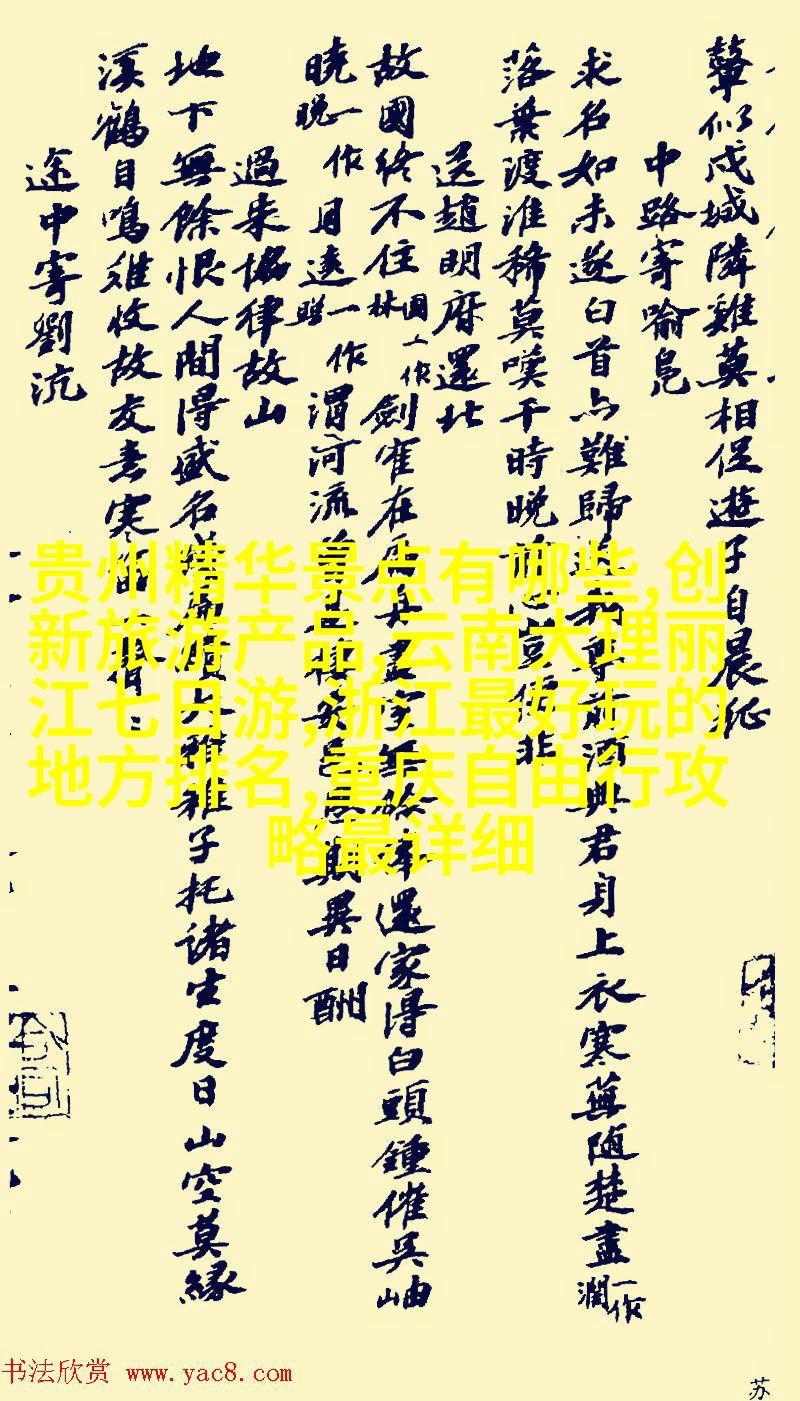 聲似戍城隣雞莫相促遊子自晨征
中路寄喻鳧
求名如未遂白首亦難歸
君身上衣寒蕪隨楚盡
一作
澗
落葉渡淮稀莫嘆干時晚
豈便非
送趙明府還北
故國終不住
園一作
林
劍
在
還家得白頭鍾催吳岫
曉
一作
晚
月遠
一作
渭河流
異日酬
過朱協律故山
地下無餘恨人間得盛名
大雅稚子托諸生度日山空莫緣
溪鶴自鳴難收故友書
途中寄劉沆
贵州精华景点有哪些,创
新旅游产品,云南大理丽
江七日游,浙江最好玩的
地方排名,重庆自由行攻
略最详细
书法欣赏 www.yac8.com
苏